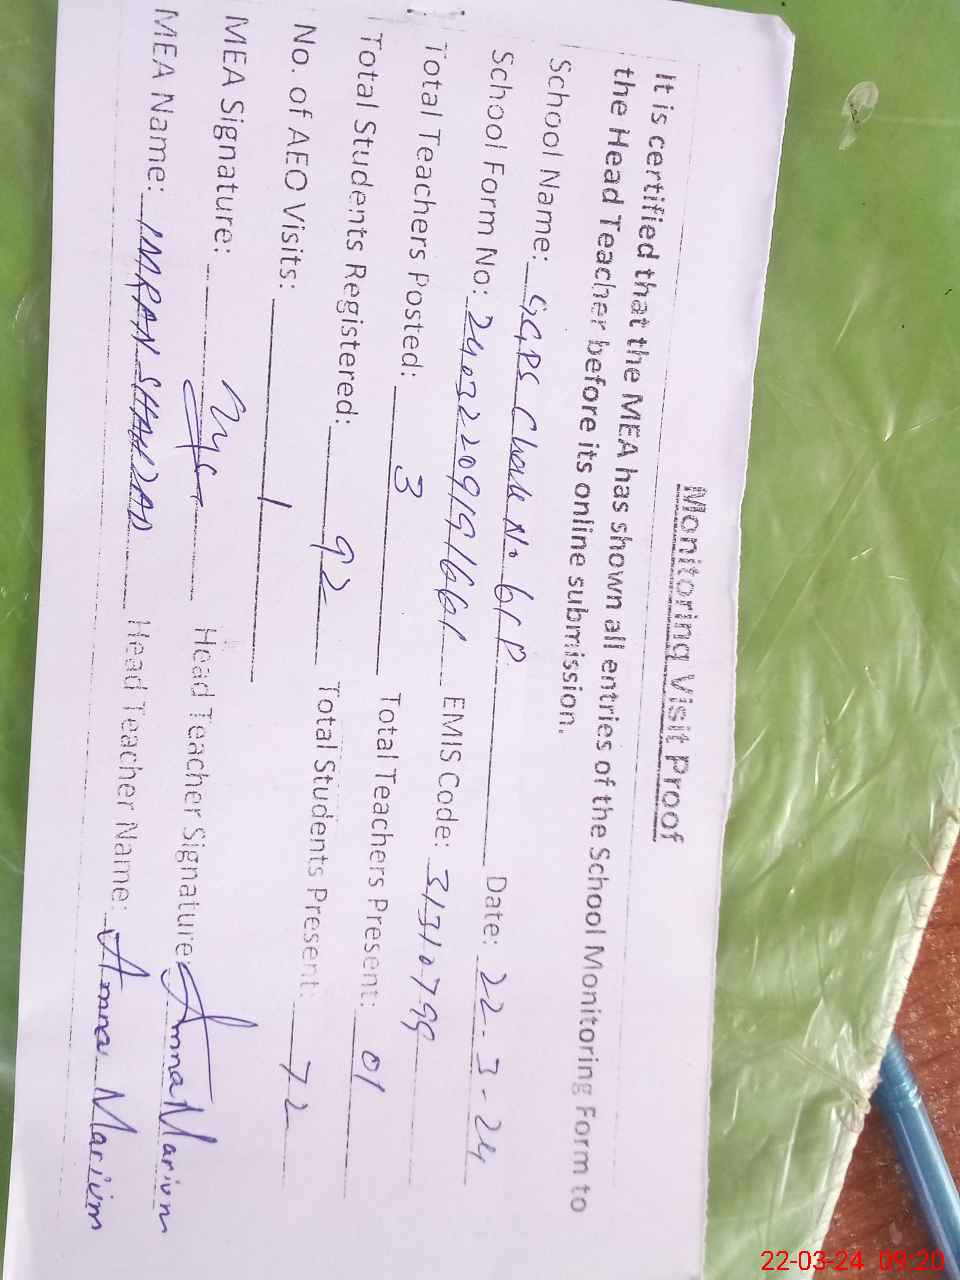 Monitoring Visit Proof
It is certified that the MEA has shown all entries of the School Monitoring Form to
the Head Teacher before its online submission.
School Name: GGPS Chak No 61 P Date: 22-3-24
School Form No: 240322091916661 EMIS Code: 31310799
Total Teachers Posted: 3 Total Teachers Present: 01
Total Students Registered: 92 Total Students Present: 72
No. of AEO Visits: 1
MEA Signature: Head Teacher Signature: Amna Marium
MEA Name: IMRAN SHAHZAD Head Teacher Name: Amna Marium
22-03-24 09:20